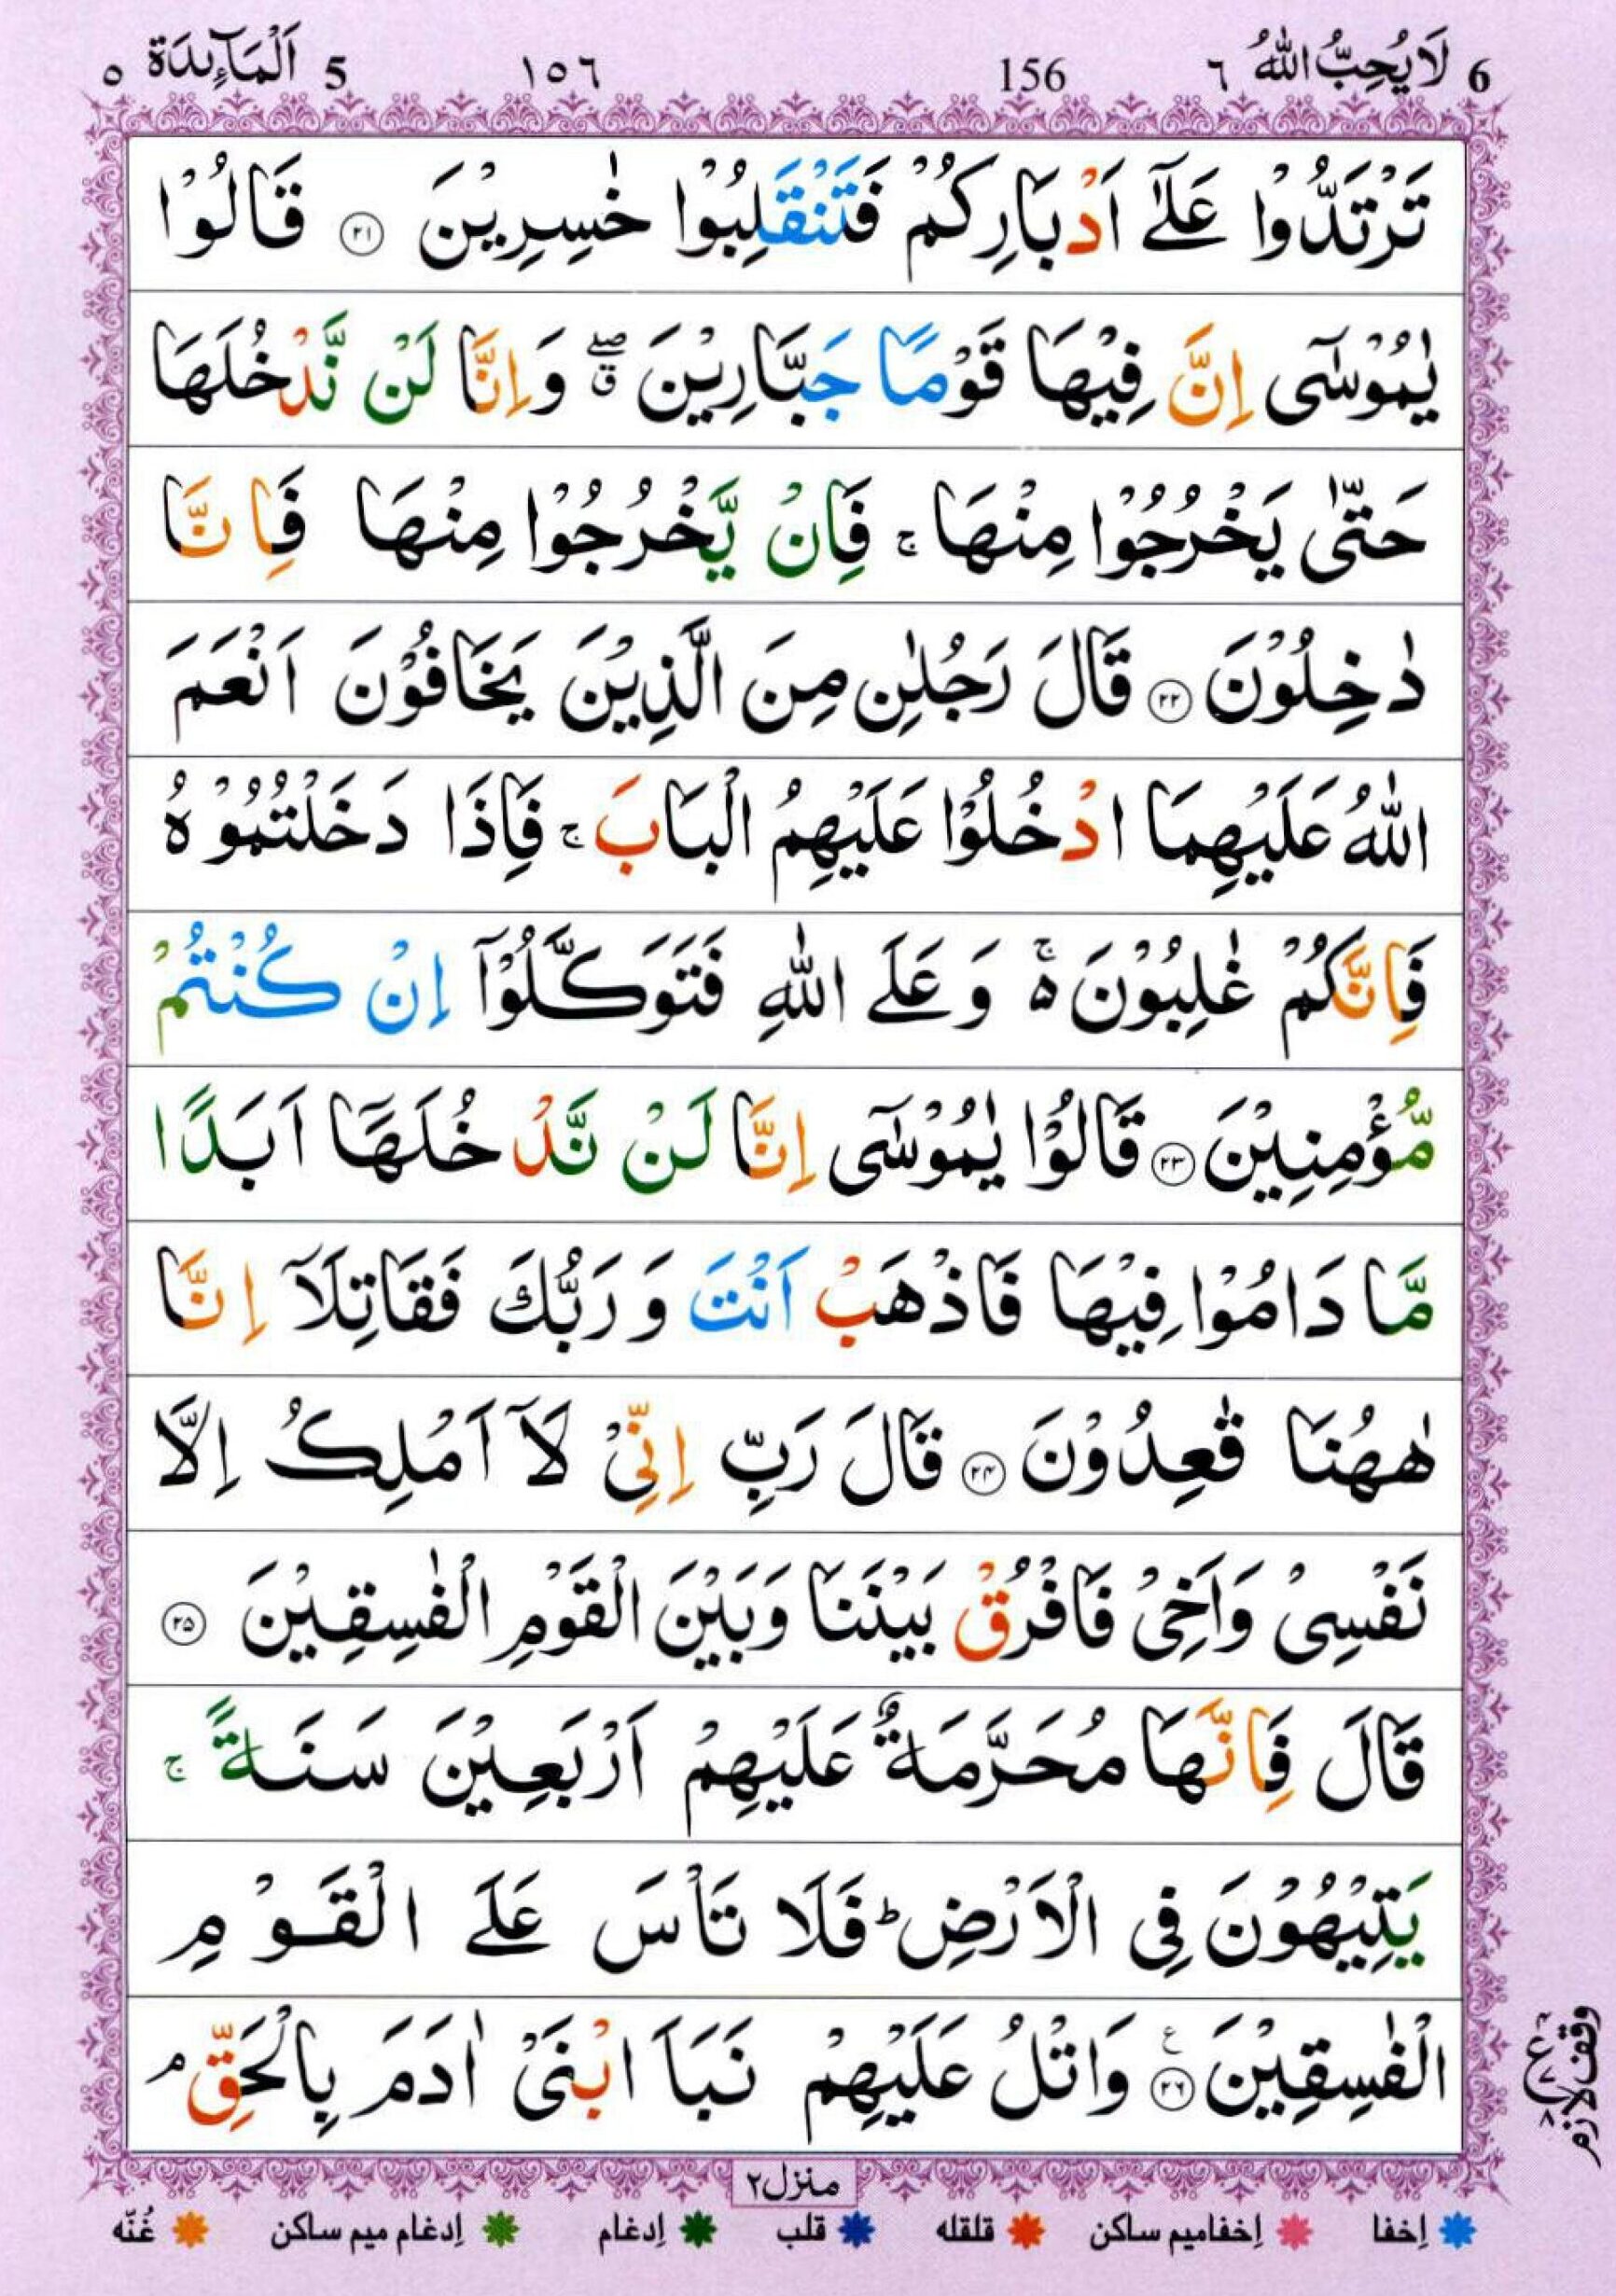 6 لَا يُحِبُّ اللّٰهُ ٦ 156 ١٥٦ 5 اَلْمَآئِدَة ٥
تَرْتَدُّوْا عَلٰٓى اَدْبَارِكُمْ فَتَنْقَلِبُوْا خٰسِرِيْنَ ۝٢١ قَالُوْا
يٰمُوْسٰٓى اِنَّ فِيْهَا قَوْمًا جَبَّارِيْنَ ۖق وَاِنَّا لَنْ نَّدْخُلَهَا
حَتّٰى يَخْرُجُوْا مِنْهَا ۚ فَاِنْ يَّخْرُجُوْا مِنْهَا فَاِنَّا
دٰخِلُوْنَ ۝٢٢ قَالَ رَجُلٰنِ مِنَ الَّذِيْنَ يَخَافُوْنَ اَنْعَمَ
اللّٰهُ عَلَيْهِمَا ادْخُلُوْا عَلَيْهِمُ الْبَابَ ۚ فَاِذَا دَخَلْتُمُوْهُ
فَاِنَّكُمْ غٰلِبُوْنَ ۚ۵ وَ عَلَى اللّٰهِ فَتَوَكَّلُوْٓا اِنْ كُنْتُمْ
مُّؤْمِنِيْنَ ۝٢٣ قَالُوْا يٰمُوْسٰٓى اِنَّا لَنْ نَّدْخُلَهَآ اَبَدًا
مَّا دَامُوْا فِيْهَا فَاذْهَبْ اَنْتَ وَ رَبُّكَ فَقَاتِلَآ اِنَّا
هٰهُنَا قٰعِدُوْنَ ۝٢٤ قَالَ رَبِّ اِنِّىْ لَآ اَمْلِكُ اِلَّا
نَفْسِىْ وَاَخِىْ فَافْرُقْ بَيْنَنَا وَبَيْنَ الْقَوْمِ الْفٰسِقِيْنَ ۝٢٥
قَالَ فَاِنَّهَا مُحَرَّمَةٌ عَلَيْهِمْ اَرْبَعِيْنَ سَنَةً ۚ
يَتِيْهُوْنَ فِى الْاَرْضِ ؕ فَلَا تَاْسَ عَلَى الْقَوْمِ
الْفٰسِقِيْنَ ۝٢٦ ع وَاتْلُ عَلَيْهِمْ نَبَاَ ابْنَىْ اٰدَمَ بِالْحَقِّ ۘ
وقف لازم
ع ٨
منزل٢
اِخفا اِخفامیم ساکن قلقله قلب اِدغام اِدغام میم ساکن غُنّه